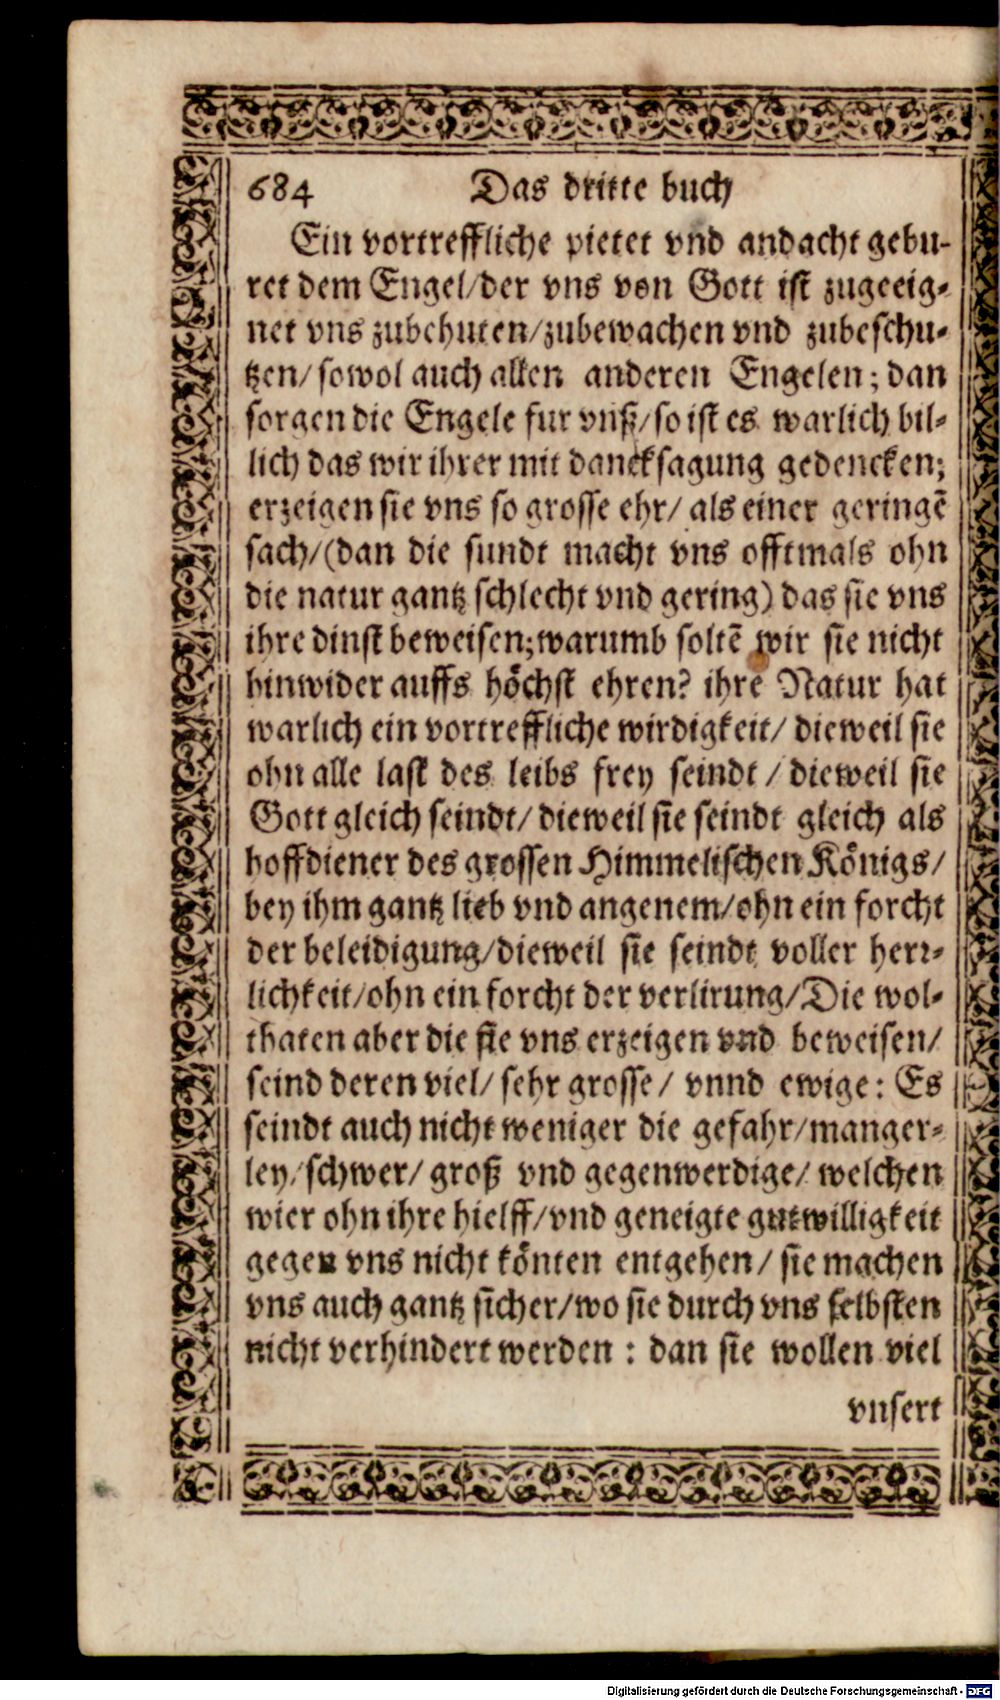 684 Das dritte buch
Ein vortreffliche pietet vnd andacht gebu-
ret dem Engel/der vns von Gott ist zugeeig-
net vns zubehuten/zubewachen vnd zubeschu-
tzen/sowol auch allen anderen Engelen; dan
sorgen die Engele fur vnß/so ist es warlich bil-
lich das wir ihrer mit dancksagung gedencken;
erzeigen sie vns so grosse ehr/als einer geringē
sach/(dan die sundt macht vns offtmals ohn
die natur gantz schlecht vnd gering) das sie vns
ihre dinst beweisen;warumb soltē wir sie nicht
hinwider auffs höchst ehren? ihre Natur hat
warlich ein vortreffliche wirdigkeit/ dieweil sie
ohn alle last des leibs frey seindt / dieweil sie
Gott gleich seindt/ dieweil sie seindt gleich als
hoffdiener des grossen Himmelischen Königs/
bey ihm gantz lieb vnd angenem/ohn ein forcht
der beleidigung/dieweil sie seindt voller herr-
lichkeit/ohn ein forcht der verlirung/Die wol-
thaten aber die sie vns erzeigen vnd beweisen/
seind deren viel/ sehr grosse/ vnnd ewige: Es
seindt auch nicht weniger die gefahr/manger-
ley/schwer/ groß vnd gegenwerdige/ welchen
wier ohn ihre hielff/vnd geneigte gutwilligkeit
gegen vns nicht könten entgehen/ sie machen
vns auch gantz sicher/wo sie durch vns selbsten
nicht verhindert werden : dan sie wollen viel
vnsert
Digitalisierung gefördert durch die Deutsche Forschungsgemeinschaft - DFG